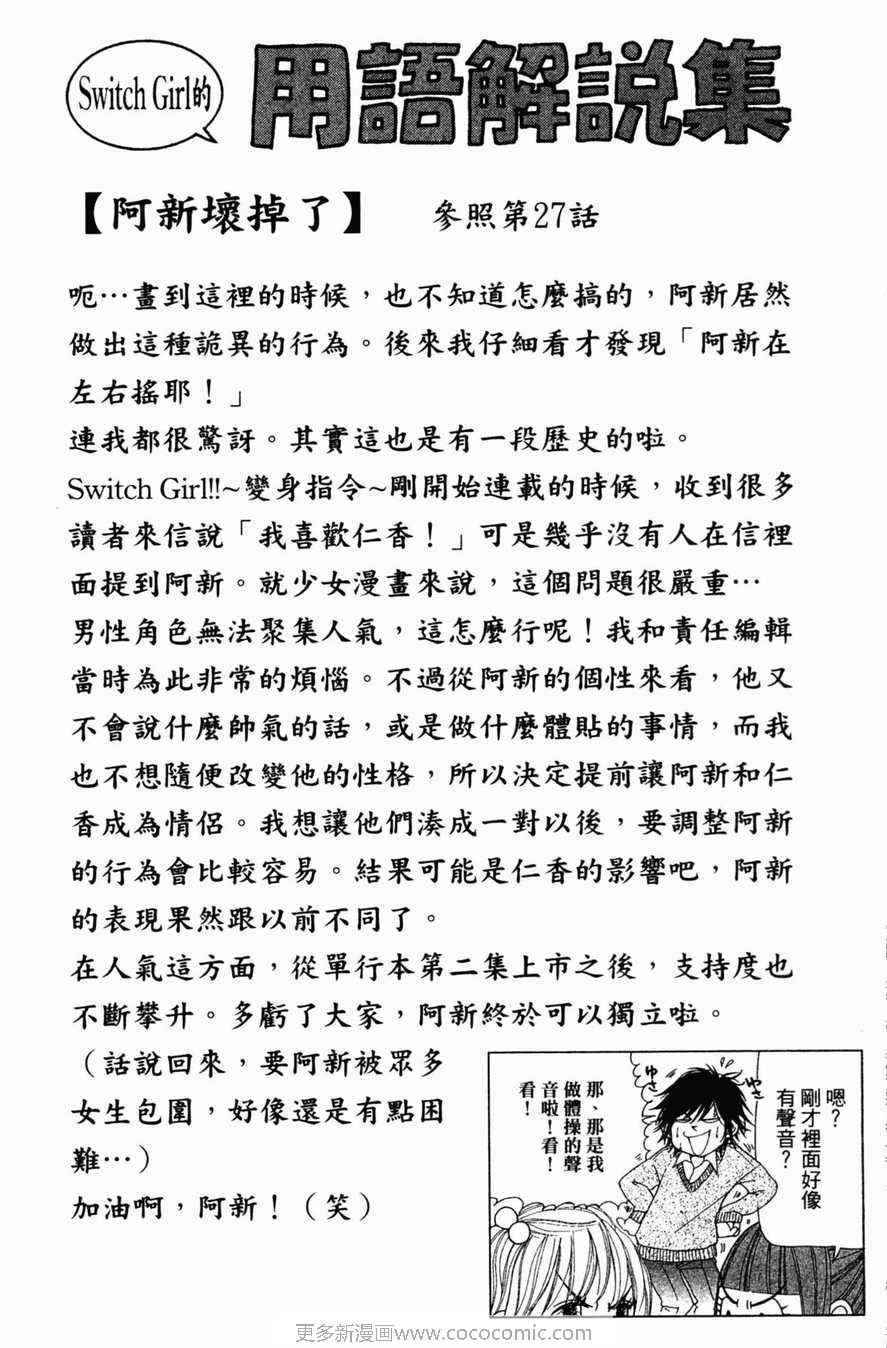 Switch Girl的
用語解説集
【阿新壞掉了】 參照第27話
呃…畫到這裡的時候，也不知道怎麼搞的，阿新居然
做出這種詭異的行為。後來我仔細看才發現「阿新在
左右搖耶！」
連我都很驚訝。其實這也是有一段歷史的啦。
Switch Girl!!~變身指令~剛開始連載的時候，收到很多
讀者來信說「我喜歡仁香！」可是幾乎沒有人在信裡
面提到阿新。就少女漫畫來說，這個問題很嚴重…
男性角色無法聚集人氣，這怎麼行呢！我和責任編輯
當時為此非常的煩惱。不過從阿新的個性來看，他又
不會說什麼帥氣的話，或是做什麼體貼的事情，而我
也不想隨便改變他的性格，所以決定提前讓阿新和仁
香成為情侶。我想讓他們湊成一對以後，要調整阿新
的行為會比較容易。結果可能是仁香的影響吧，阿新
的表現果然跟以前不同了。
在人氣這方面，從單行本第二集上市之後，支持度也
不斷攀升。多虧了大家，阿新終於可以獨立啦。
（話說回來，要阿新被眾多
女生包圍，好像還是有點困
難…）
加油啊，阿新！（笑）
嗯？
剛才裡面好像
有聲音？
ゆさ
ゆさ
那、那是我
做體操的聲
音啦！看！
看！
更多新漫画www.cococomic.com